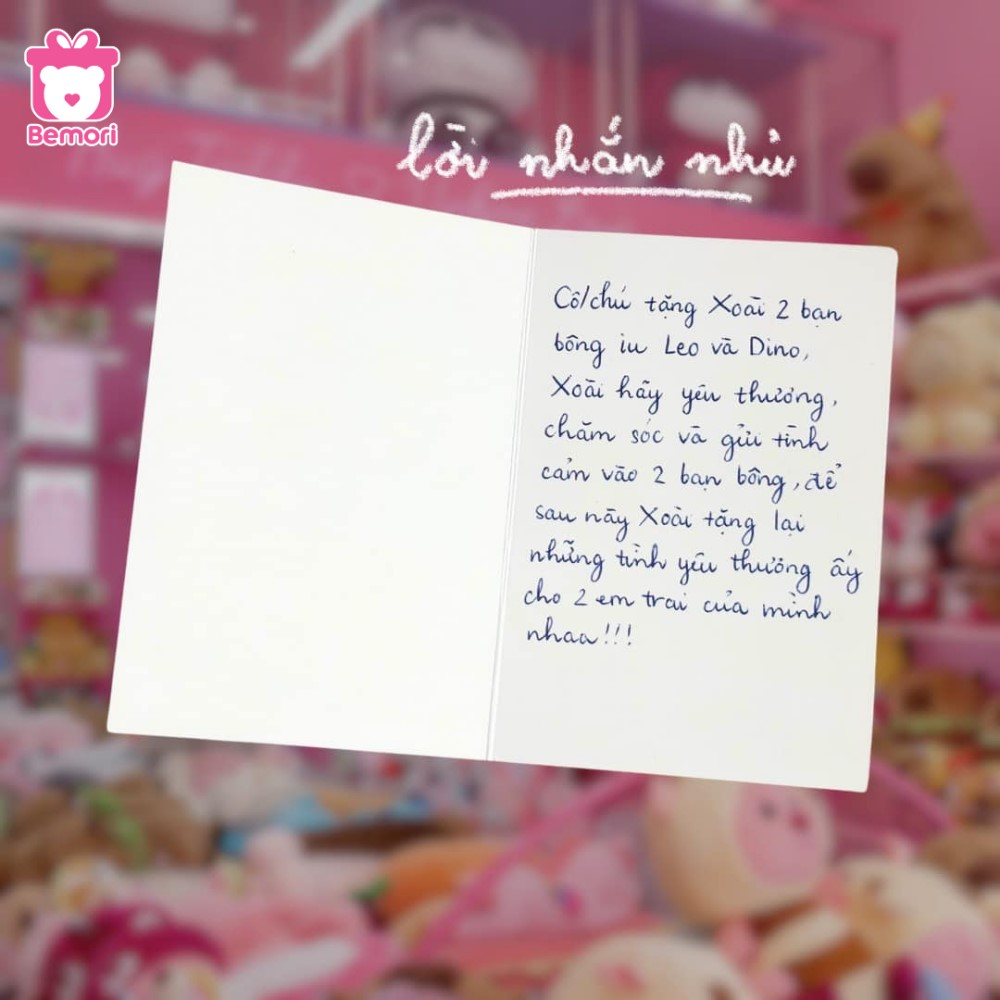 Bemori
lời nhắn nhủ
Cô/chú tặng Xoài 2 bạn
bông iu Leo và Dino,
Xoài hãy yêu thương,
chăm sóc và gửi tình
cảm vào 2 bạn bông, để
sau này Xoài tặng lại
những tình yêu thương ấy
cho 2 em trai của mình
nhaa!!!